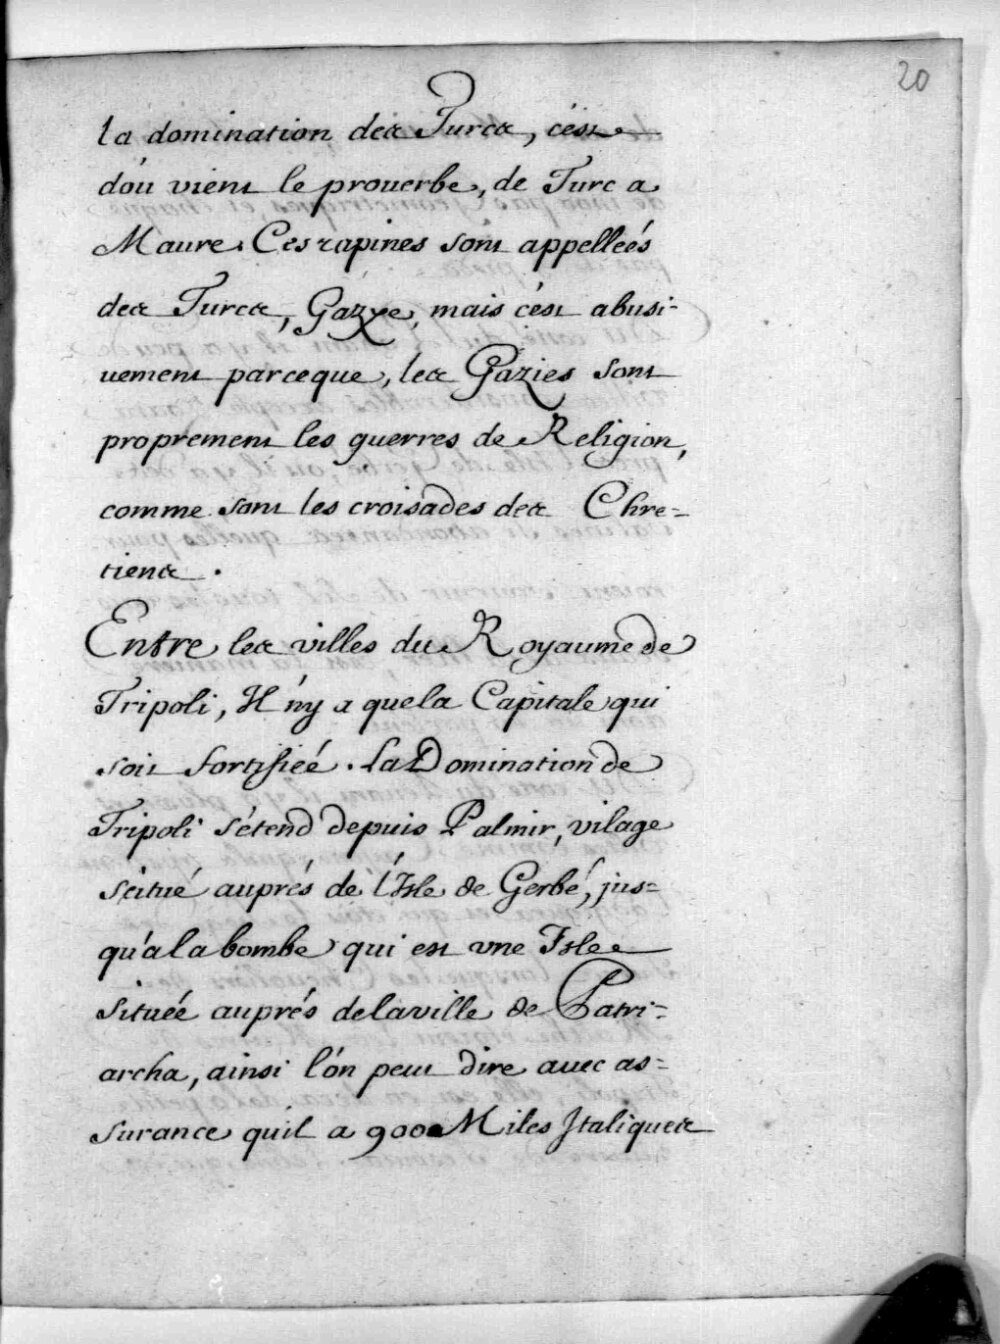 20
la domination des Turcs, c'est
d'où vient le prouerbe, de Turc a
Maure. Ces rapines sont appelleés
des Turcs, Gazye, mais c'est abusi-
uement parceque, les Gazies sont
proprement les guerres de Religion,
comme sont les croisades des Chre-
tiens.
Entre les villes du Royaume de
Tripoli, Il n'y a que la Capitale qui
soit fortifieé. La Domination de
Tripoli s'etend depuis Palmir, vilage
scitué auprés de l'Isle de Gerbé, jus-
qu'a la bombe qui est vne Isle
situeé auprés de la ville de Patri-
archa, ainsi l'on peut dire auec as-
surance quil a 900 Miles Italiques